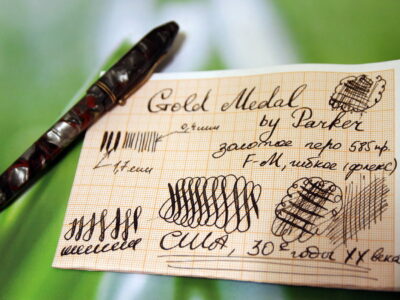 Gold Medal
by Parker
0,4 мм
золотое перо 585 пр.
F-M, гибкое (флекс)
1,7 мм
США, 30е годы XX века